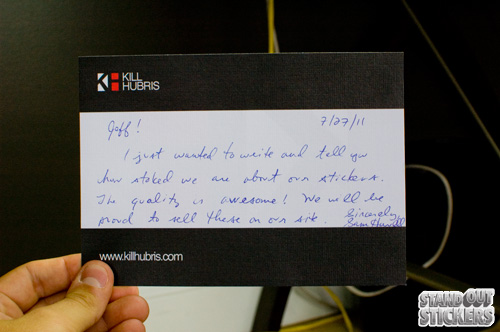 KILL
HUBRIS
Jeff! 7/27/11
I just wanted to write and tell you
how stoked we are about our stickers.
The quality is awesome! We will be
proud to sell these on our site. Sincerely,
Sam
www.killhubris.com
STAND OUT
STICKERS